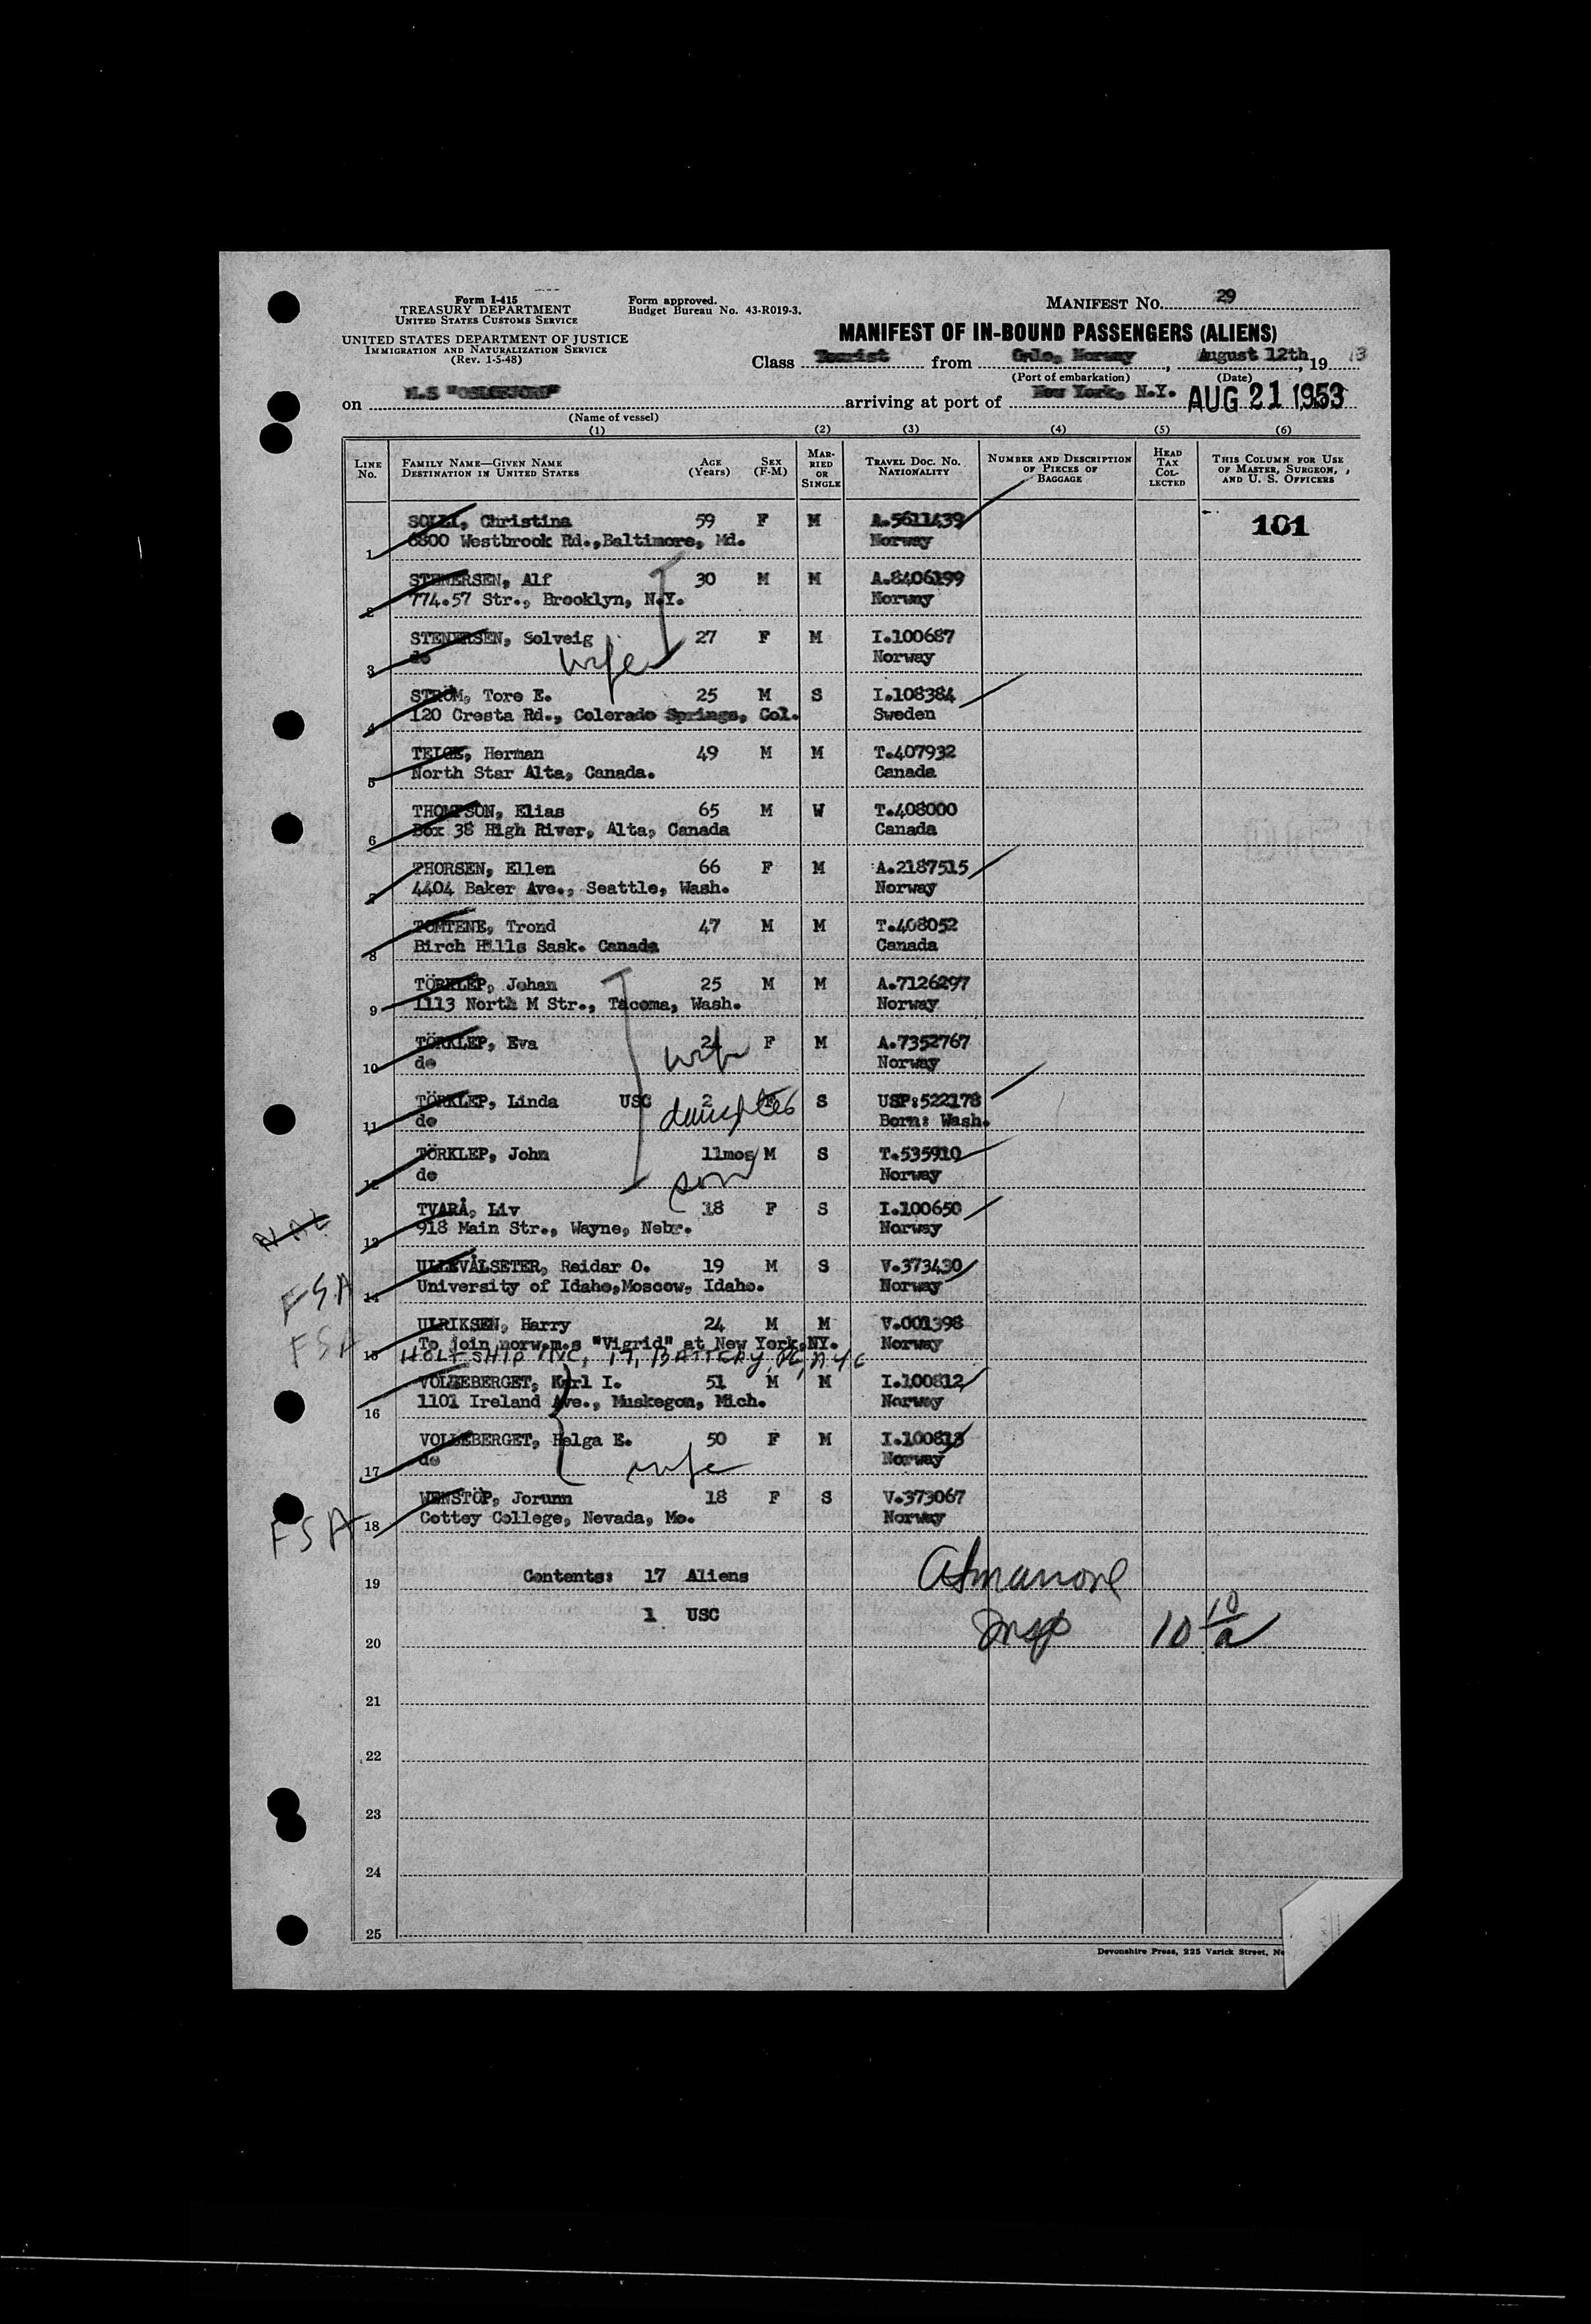 Form I-415
TREASURY DEPARTMENT
UNITED STATES CUSTOMS SERVICE
UNITED STATES DEPARTMENT OF JUSTICE
IMMIGRATION AND NATURALIZATION SERVICE
(Rev. 1-5-48)
Form approved.
Budget Bureau No. 43-R019-3.
MANIFEST NO. 29
MANIFEST OF IN-BOUND PASSENGERS (ALIENS)
Class Tourist from Oslo, Norway, August 12th, 19
(Port of embarkation) (Date)
on M.S "OSLOFJORD" arriving at port of New York, N.Y. AUG 21 1953
(Name of vessel)
(1) (2) (3) (4) (5) (6)
LINE NO. FAMILY NAME—GIVEN NAME DESTINATION IN UNITED STATES AGE (Years) SEX (F-M) MARRIED OR SINGLE TRAVEL DOC. NO. NATIONALITY NUMBER AND DESCRIPTION OF PIECES OF BAGGAGE HEAD TAX COLLECTED THIS COLUMN FOR USE OF MASTER, SURGEON, AND U. S. OFFICERS
SOLLI, Christina 59 F M A.5611439 101
1 6800 Westbrook Rd.,Baltimore, Md. Norway
STENERSEN, Alf 30 M M A.8406199
2 774.57 Str., Brooklyn, N.Y. Norway
STENERSEN, Solveig 27 F M I.100687
3 do wife Norway
STRÖM, Tore E. 25 M S I.108384
4 120 Cresta Rd., Colorado Springs, Col. Sweden
TEIGE, Herman 49 M M T.407932
5 North Star Alta, Canada. Canada
THOMPSON, Elias 65 M W T.408000
6 Box 38 High River, Alta, Canada Canada
THORSEN, Ellen 66 F M A.2187515
7 4404 Baker Ave., Seattle, Wash. Norway
TOMTENE, Trond 47 M M T.408052
8 Birch Hills Sask. Canada Canada
TÖRKLEP, Johan 25 M M A.7126297
9 1113 North M Str., Tacoma, Wash. Norway
TÖRKLEP, Eva 24 F M A.7352767
10 do wife Norway
TÖRKLEP, Linda USC 2 F S USP:522178
11 do daughter Born: Wash.
TÖRKLEP, John 11mos M S T.535910
12 do son Norway
TVARÅ, Liv 18 F S I.100650
13 918 Main Str., Wayne, Nebr. Norway
ULLEVÅLSETER, Reidar O. 19 M S V.373430
FSA 14 University of Idaho,Moscow, Idaho. Norway
ULRIKSEN, Harry 24 M M V.001398
FSA 15 To join norw.m.s "Vigrid" at New York,NY. Norway
HOLFSHIP INC, 17, BATTERY PL, NYC
VOLLEBERGET, Karl I. 51 M M I.100812
16 1101 Ireland Ave., Muskegon, Mich. Norway
VOLLEBERGET, Helga E. 50 F M I.100813
17 do wife Norway
WENSTÖP, Jorunn 18 F S V.373067
FSA 18 Cottey College, Nevada, Mo. Norway
19 Contents: 17 Aliens
1 USC
20 Insp 10 10/a
21
22
23
24
25
Devonshire Press, 225 Varick Street, Ne